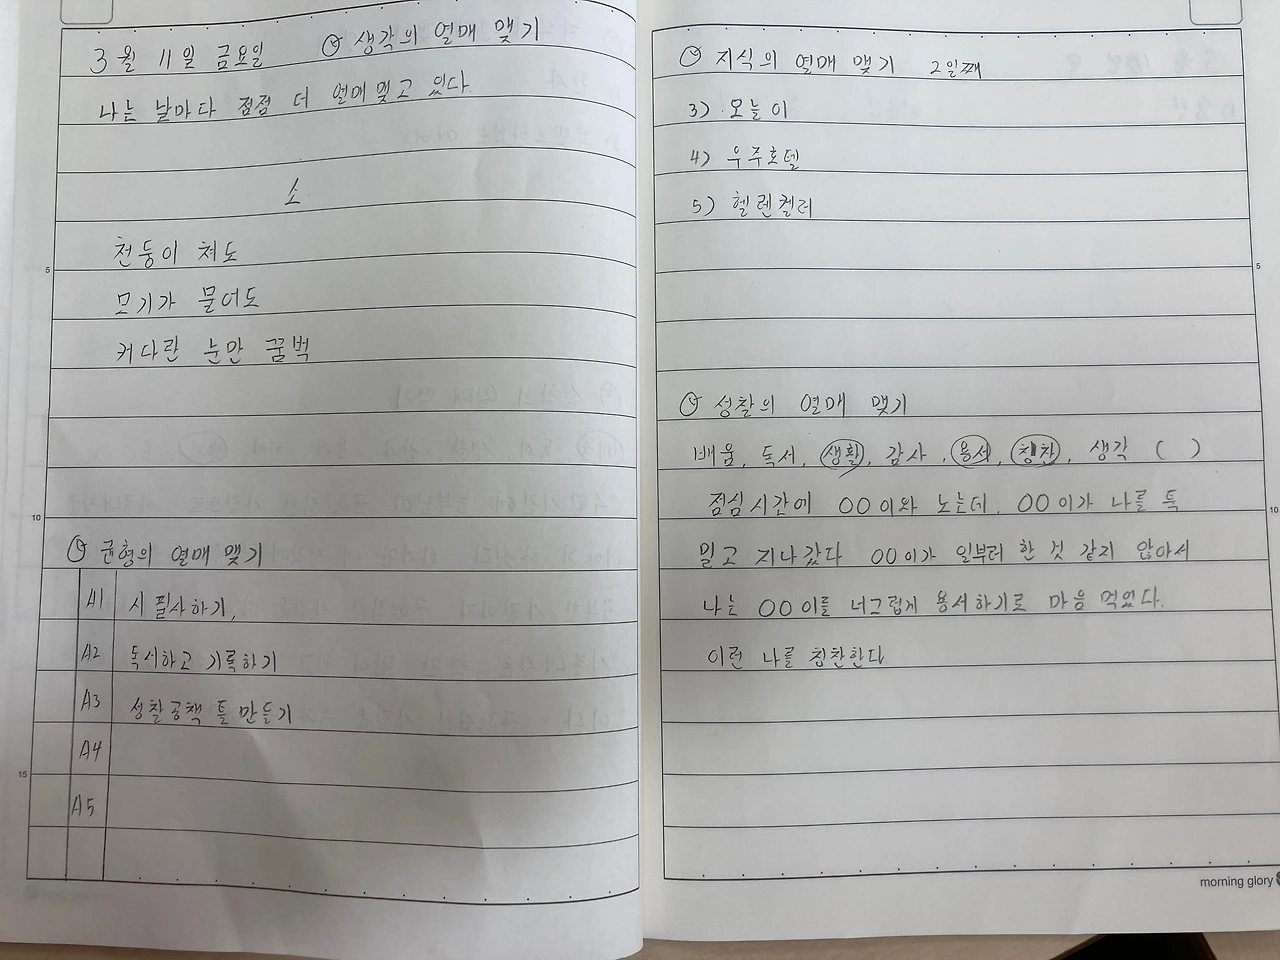 3월 11일 금요일 생각의 열매 맺기
나는 날마다 점점 더 열매맺고 있다.
소
천둥이 쳐도
모기가 물어도
커다란 눈만 꿈벅
5
10
균형의 열매 맺기
A1 시 필사하기,
A2 독서하고 기록하기
A3 성찰공책 틀 만들기
A4
15
A5
지식의 열매 맺기 2일째
3) 오늘이
4) 우주호텔
5) 헬렌켈러
5
성찰의 열매 맺기
배움, 독서, 생활, 감사, 용서, 칭찬, 생각 ( )
점심시간에 OO이와 노는데, OO이가 나를 툭
10
밀고 지나갔다 OO이가 일부러 한 것 같지 않아서
나는 OO이를 너그럽게 용서하기로 마음 먹었다.
이런 나를 칭찬한다
morning glory